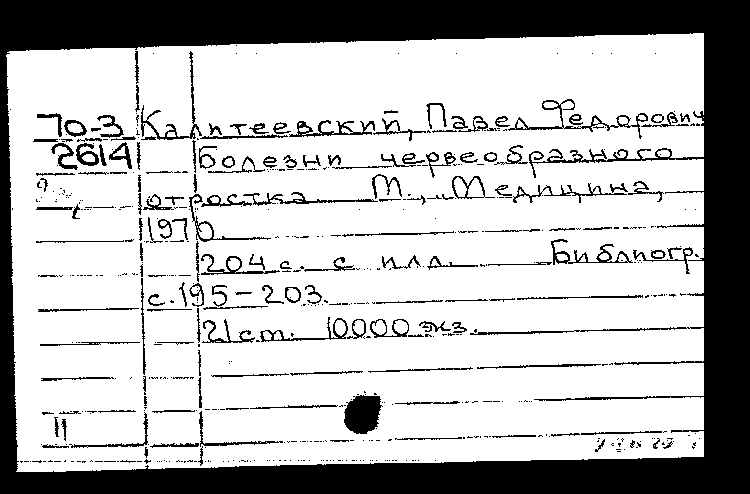 70-3 Калитеевский, Павел Федорович
2614 Болезни червеобразного
отростка М., "Медицина,
1970.
204 с. с илл. Библиогр.
с. 195-203.
21 cm. 10000 экз.
11